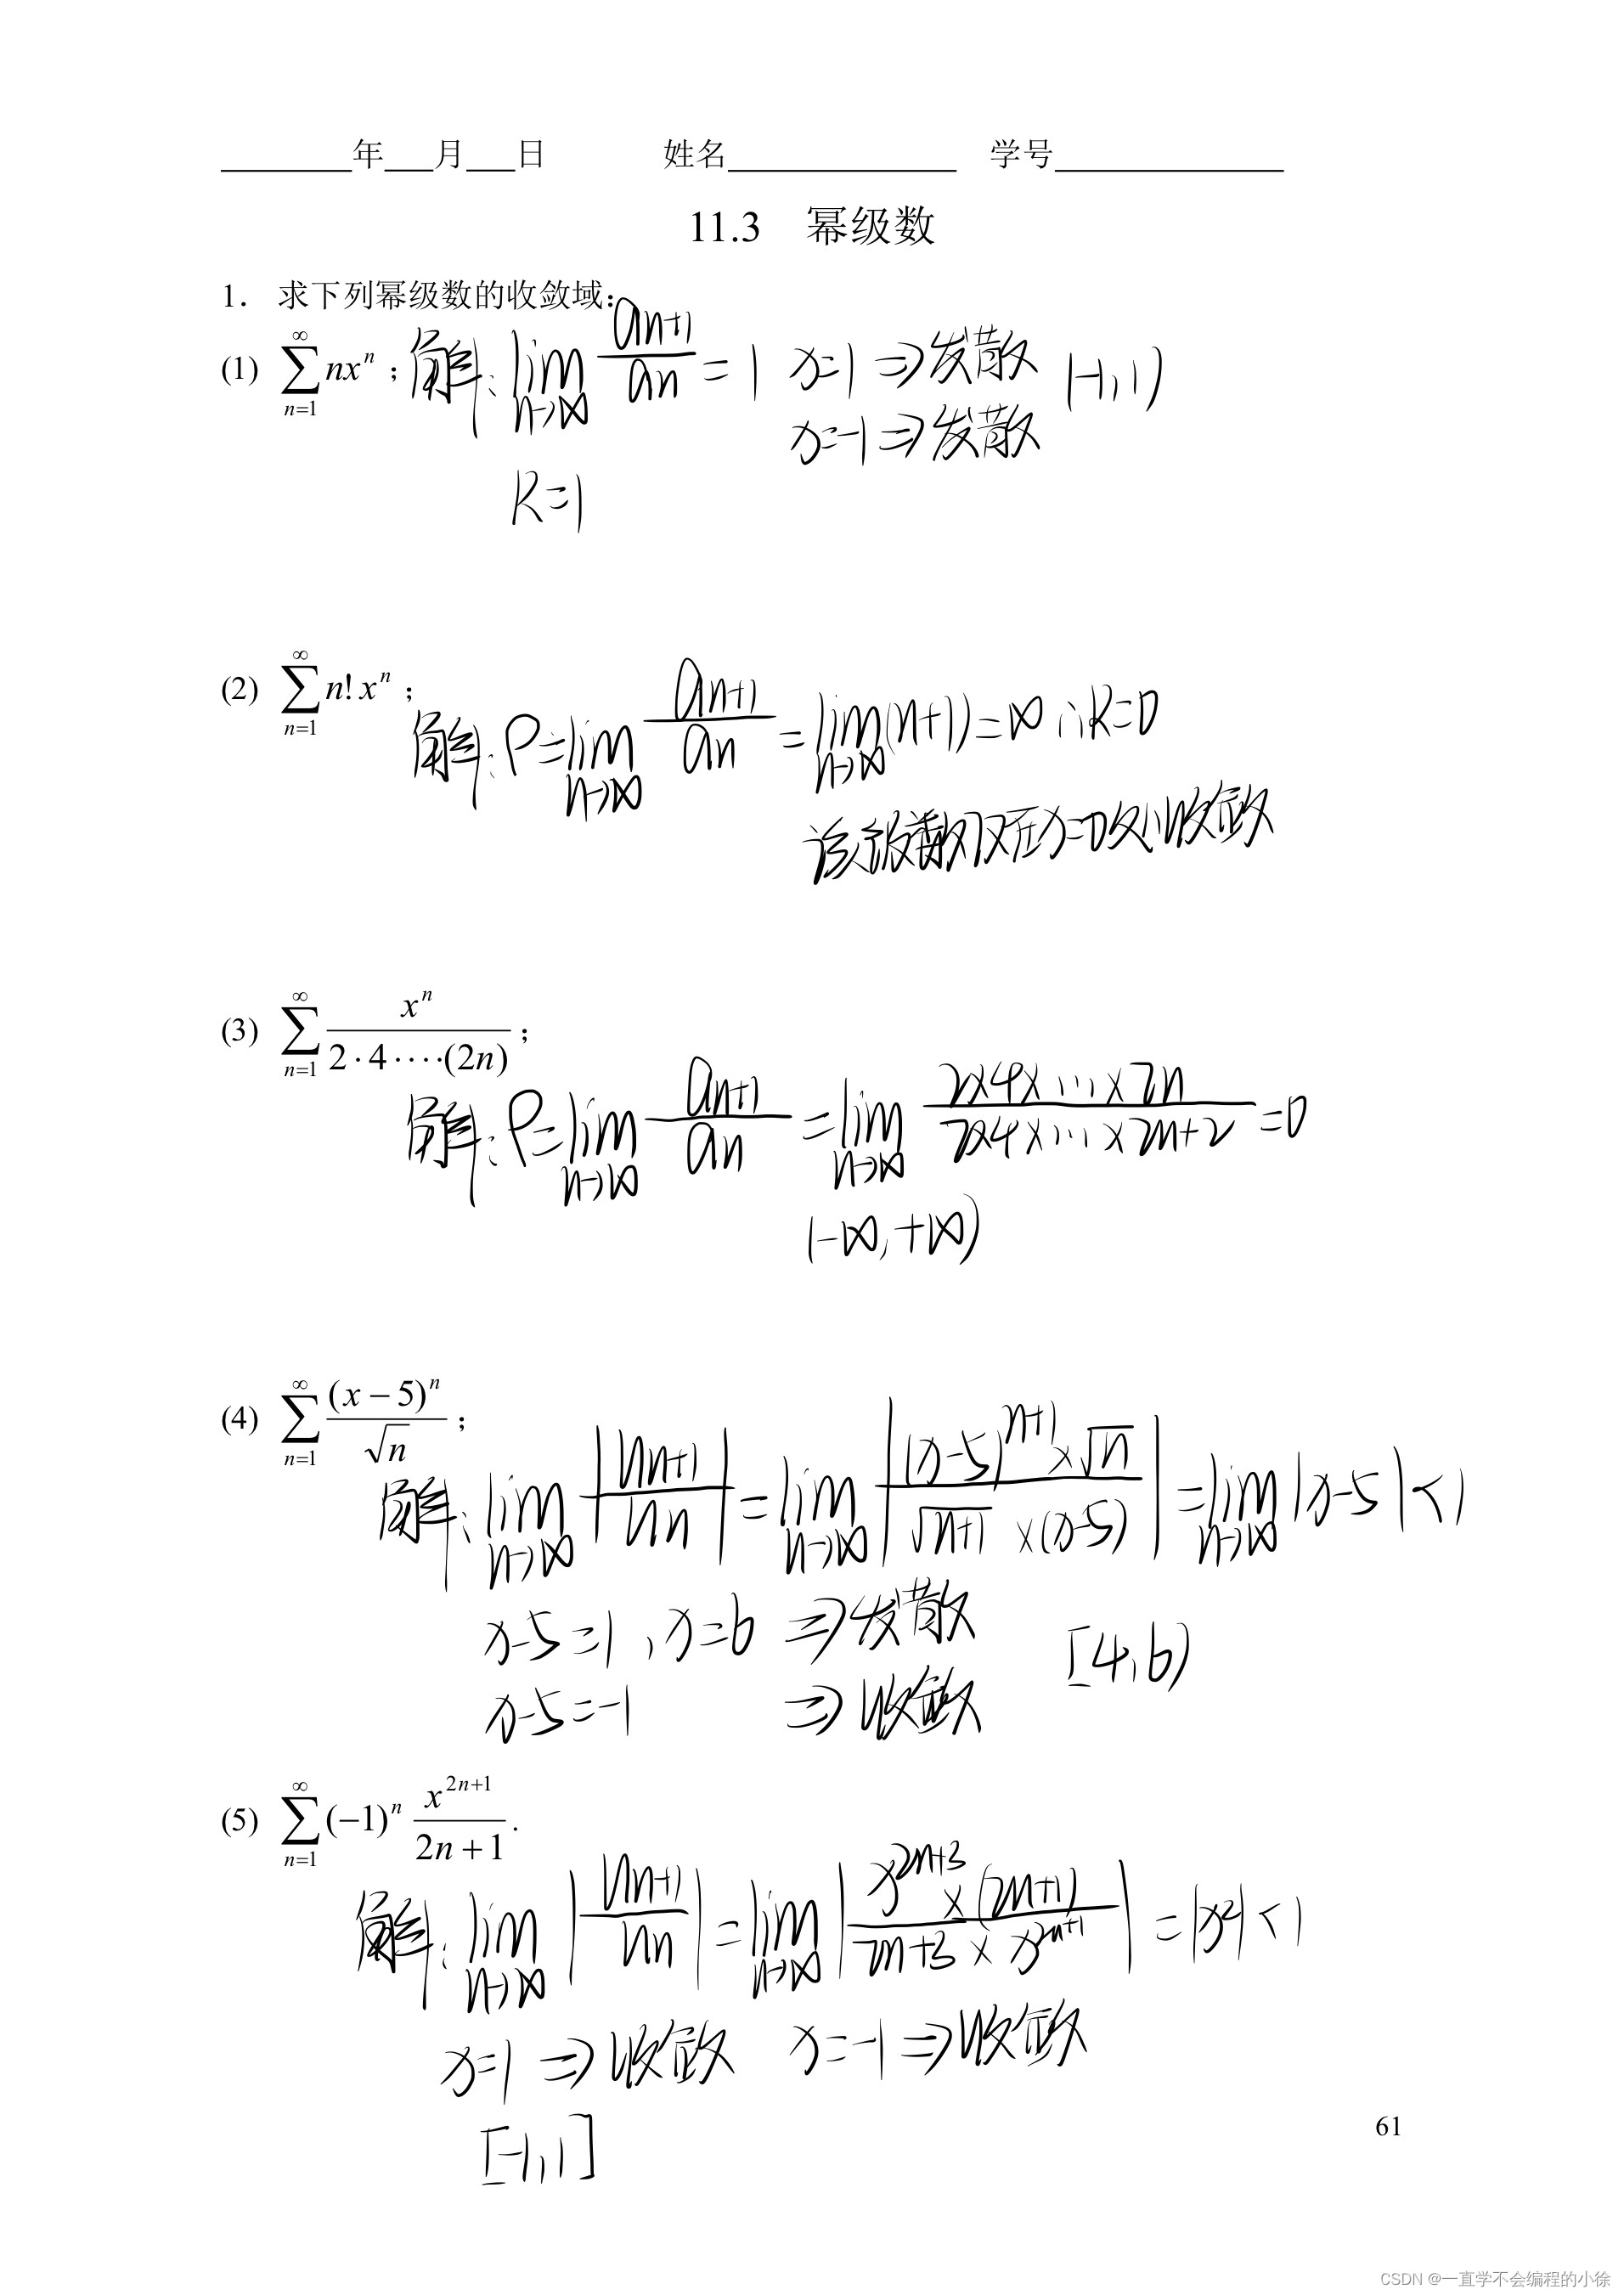 年 月 日 姓名 学号
11.3 幂级数
1. 求下列幂级数的收敛域:
(1) \sum_{n=1}^{\infty} nx^n ; 解: \lim_{n→∞} \frac{a_{n+1}}{a_n} = 1 x=1 ⇒发散 (-1,1)
x=-1⇒发散
R=1
(2) \sum_{n=1}^{\infty} n! x^n ;
解: ρ=\lim_{n→∞} \frac{a_{n+1}}{a_n} = \lim_{n→∞}(n+1)=∞ ∴R=0
该级数仅在x=0处收敛
(3) \sum_{n=1}^{\infty} \frac{x^n}{2·4·⋯·(2n)} ;
解: ρ=\lim_{n→∞} \frac{a_{n+1}}{a_n} = \lim_{n→∞} \frac{2×4×⋯×2n}{2×4×⋯×2n+2} =0
(-∞,+∞)
(4) \sum_{n=1}^{\infty} \frac{(x-5)^n}{\sqrt{n}} ;
解: \lim_{n→∞} |\frac{u_{n+1}}{u_n}| = \lim_{n→∞} |\frac{(x-5)^{n+1}×\sqrt{n}}{\sqrt{n+1}×(x-5)}| = \lim_{n→∞} |x-5|<1
x-5=1,x=6 ⇒发散
[4,6)
x-5=-1 ⇒收敛
(5) \sum_{n=1}^{\infty} (-1)^n \frac{x^{2n+1}}{2n+1} .
解: \lim_{n→∞} |\frac{u_{n+1}}{u_n}| = \lim_{n→∞} |\frac{x^{2n+3}×(2n+1)}{2n+3×x^{2n+1}}| = |x^2|<1
x=1⇒收敛 x=-1⇒收敛
[-1,1]
61
CSDN @一直学不会编程的小徐